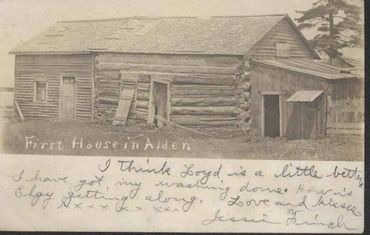 First House in Alden
I think Loyd is a little better
I have got my washing done. How is
Elgy getting along. Love and kisses
x x x x x x x x
Jessie Finch